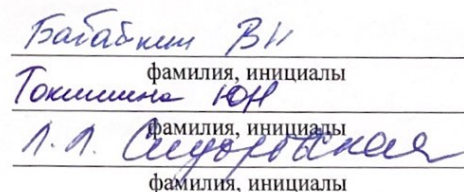 Бабайкин ВН
фамилия, инициалы
Токмина ЮН
фамилия, инициалы
Л.Л. Сидорская
фамилия, инициалы